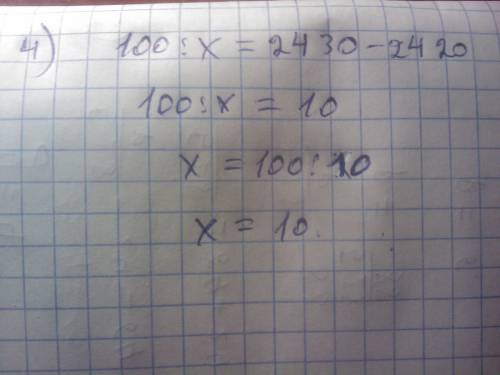 4) 100 : x = 2430 - 2420
100 : x = 10
x = 100 : 10
x = 10.